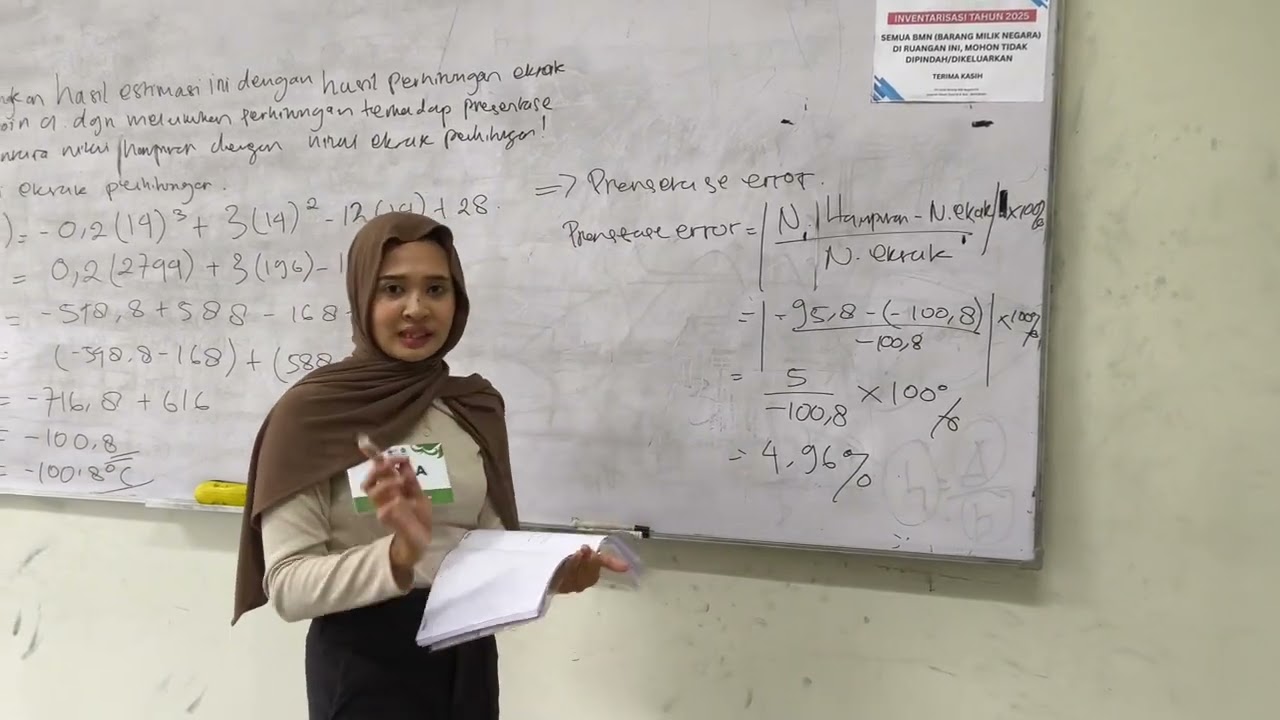 hasil estimasi ini dengan hasil perhitungan eksak
poin a. dgn melakukan perhitungan terhadap presentase
antara nilai hampiran dengan nilai eksak perhitungan!
eksak perhitungan.
) = -0,2(14)³ + 3(14)² - 12(14) + 28.
= 0,2(2744) + 3(196) - 1
= -548,8 + 588 - 168
= (-548,8 - 168) + (588
= -716,8 + 616
= -100,8
= -100,8°C
=> Prensetase error.
Prensetase error = | N. | Hampiran - N. eksak | x 100%
N. eksak
= | -95,8 - (-100,8) | x 100%
-100,8
= 5 x 100%
-100,8
= 4,96%
INVENTARISASI TAHUN 2025
SEMUA BMN (BARANG MILIK NEGARA)
DI RUANGAN INI, MOHON TIDAK
DIPINDAH/DIKELUARKAN
TERIMA KASIH
A